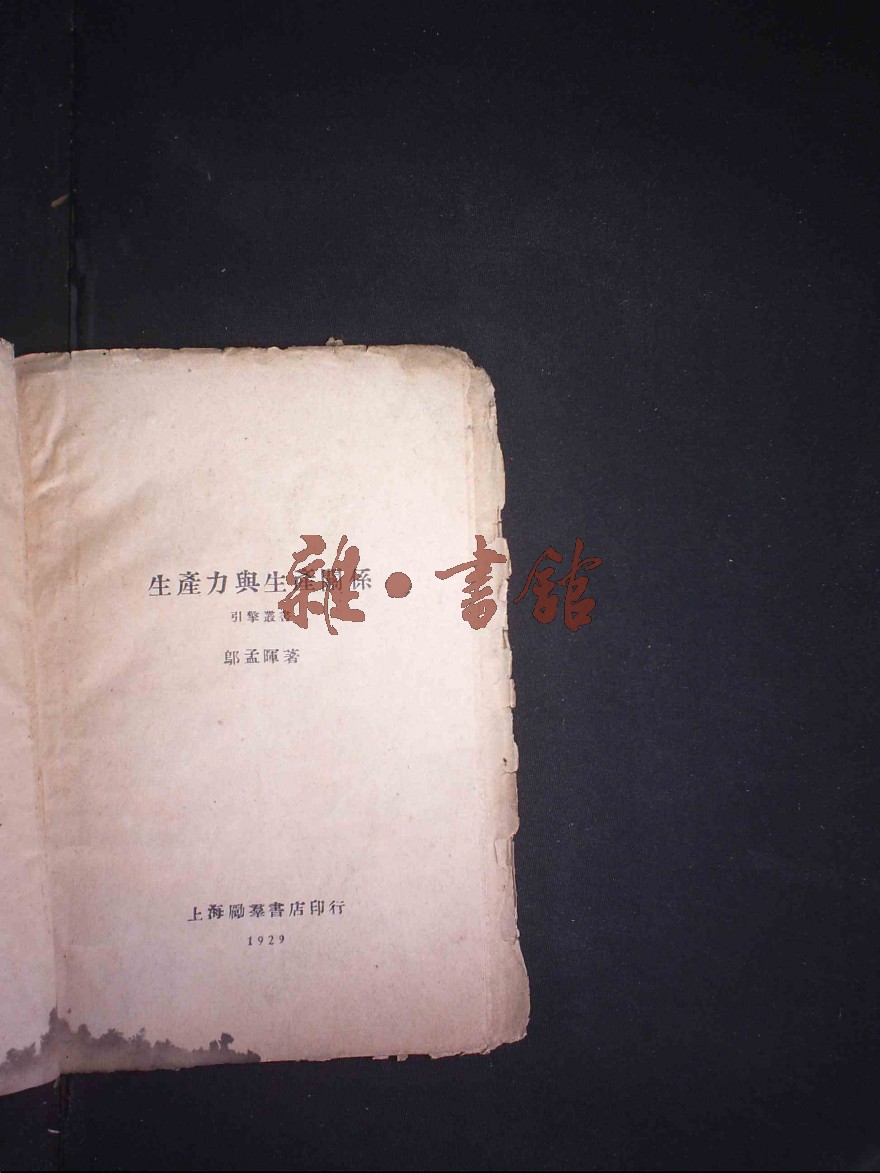 生產力與生產關係
引擎叢書
鄔孟暉著
上海勵羣書店印行
1929
雜·書館